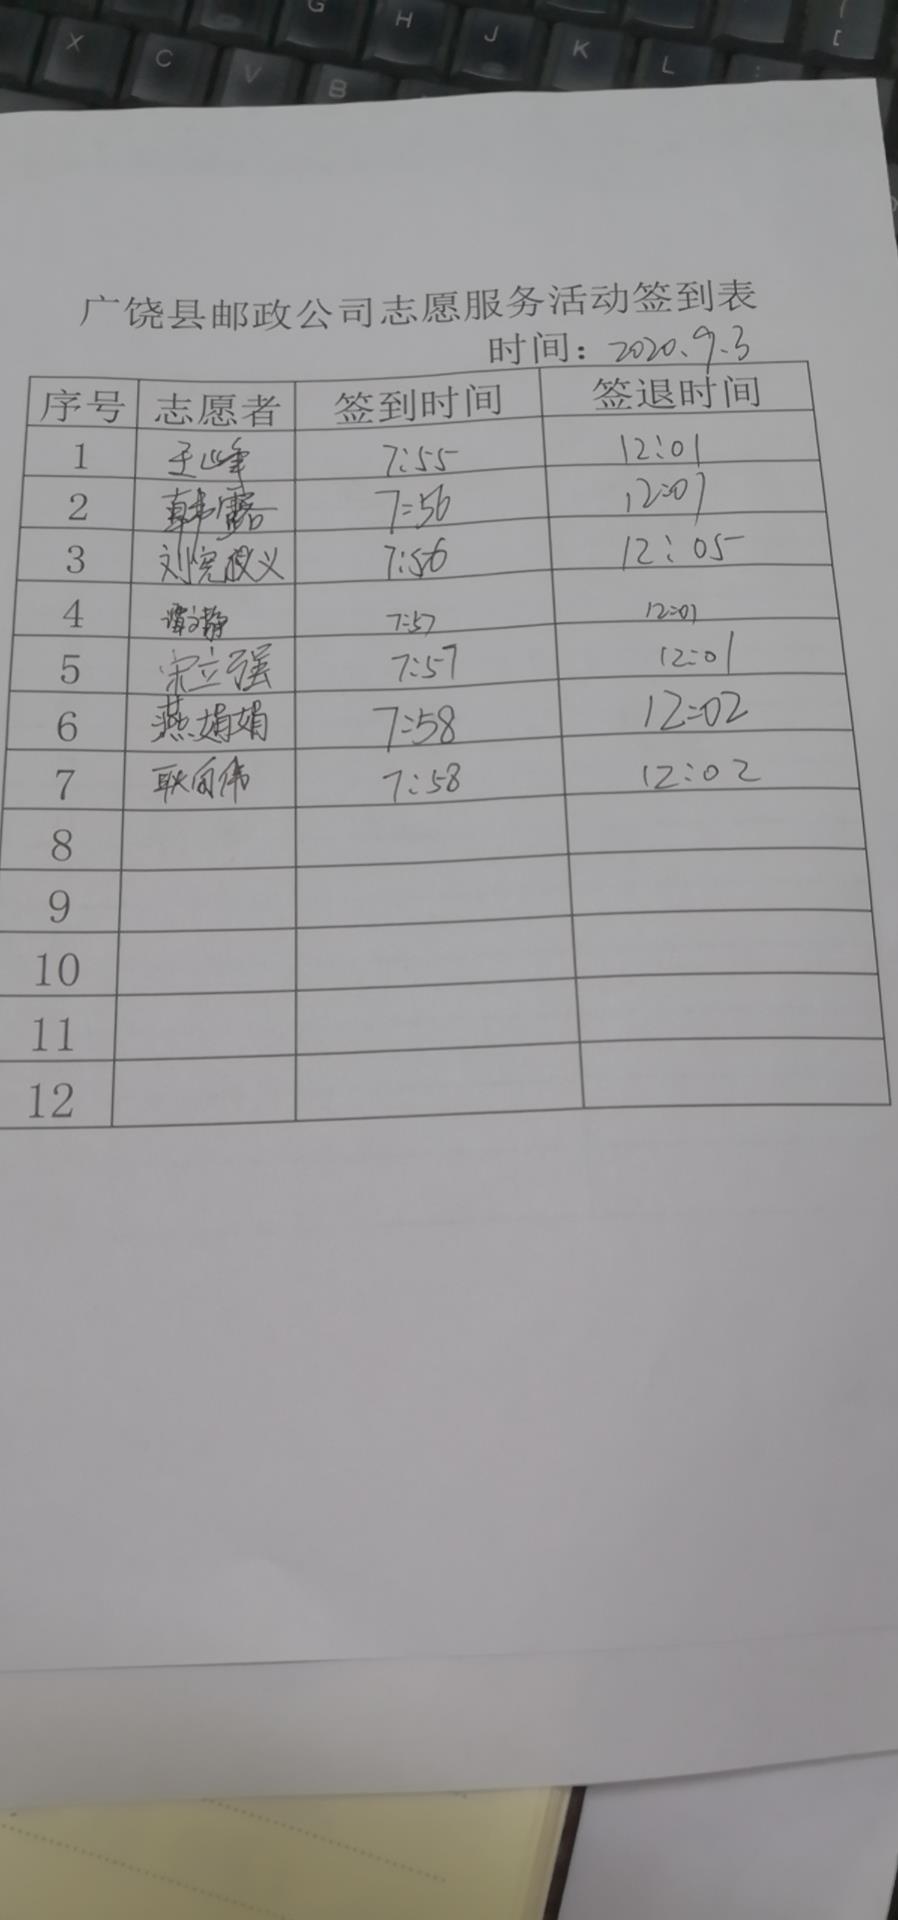 X C V B G H J K L
广饶县邮政公司志愿服务活动签到表
时间：2020.9.3
序号 志愿者 签到时间 签退时间
1 7:55 12:01
2 韩露 7:56 12:01
3 7:56 12:05
4 7:57 12:01
5 宋立强 7:57 12:01
6 燕娟娟 7:58 12:02
7 耿向伟 7:58 12:02
8
9
10
11
12